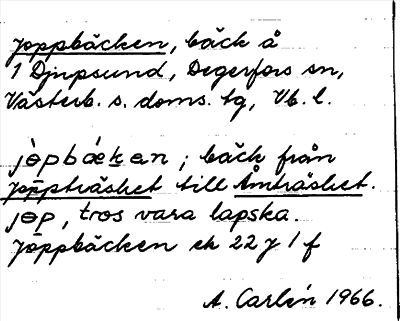 Joppbäcken, bäck å
1 Djupsund, Degerfors sn,
Västerb. s. doms. tg, Vb. l.
jòpbǽkan ; bäck från
Joppträsket till Åmträsket.
jɵp, tros vara lapska.
Joppbäcken ek 22 J 1 f
A. Carlén 1966.